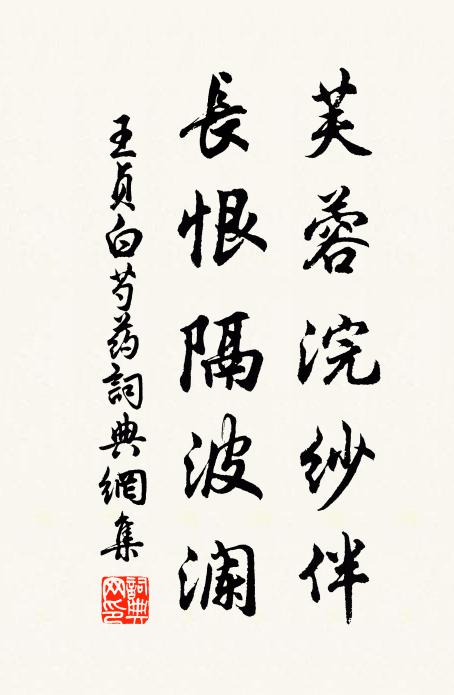 芙蓉浣紗伴
長恨隔波瀾
王貞白芍药詞典網集
詞典網印